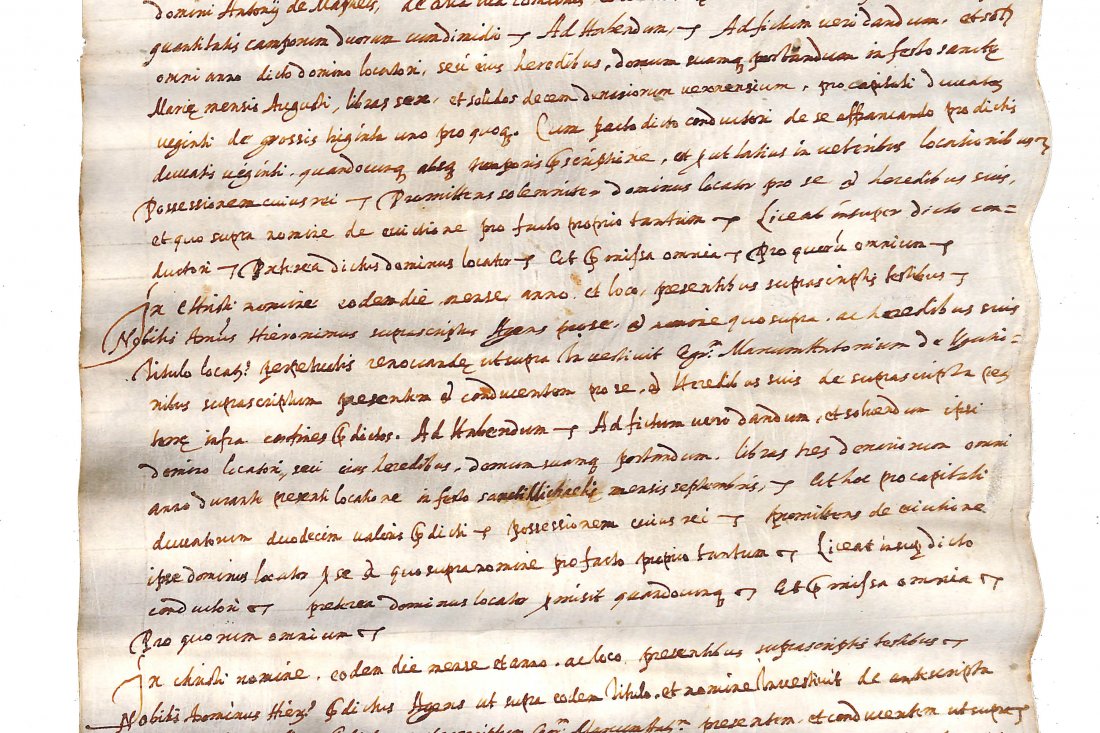 domini Antonij de
quantitatis camporum duorum cum dimidio Ad Habendum, Ad fictum vero dandum, et
omni anno dicto domino locatori, seu eius heredibus, domum suamq portandum in festo sanctę
Marię mensis Augusti, libras sex, et solidos decem denariorum veronensium, pro capitali ducatorum
viginti de grossis triginta uno pro quoq. Cum pacto dicto conductori de se affrancando pro dictis
ducatis viginti, quandocunq absq temporis pscriptione, et put latius in veteribus locationibus
Possessionem cuius rei Promittens solemniter dominus locator pro se et heredibus suis,
et quo supra nomine de evictione pro facto proprio tantum Liceat insuper dicto con=
ductori Preterea dictus dominus locator Et pmissa omnia Pro quorum omnium
In Christi nomine eodem die, mense, anno, et loco, presentibus suprascriptis testibus
Nobilis Hieronimus suprascriptus Agens pro se, et nomine quo supra, ac heredibus suis
Titulo locat.s perpetualis renovandę ut supra Investivit Egr. Marcum Antonium de
nibus suprascriptum presentem et conducentem pro se, et Heredibus suis de suprascripta petia
terrę infra confines pdictos. Ad Habendum Ad fictum vero dandum, et solvendum ipsi
domino locatori, seu eius heredibus, domum suamq portandum, libras tres denariorum omni
anno durante presenti locatione in festo sancti Michaelis mensis septembris, Et hoc pro capitali
ducatorum duodecim valoris pdicti Possessionem cuius rei promittens de evictione
ipse dominus locator p se et quo supra nomine pro facto proprio tantum Liceat insup dicto
conductori preterea dominus locator pmisit quandocunq Et pmissa omnia
Pro quorum omnium
In christi nomine, eodem die mense et anno, ac loco, presentibus suprascriptis testibus
Nobilis Dominus Hier.s pdictus Agens ut supra eodem Titulo, et nomine Investivit de antescripta
presentem, et conducentem ut supra